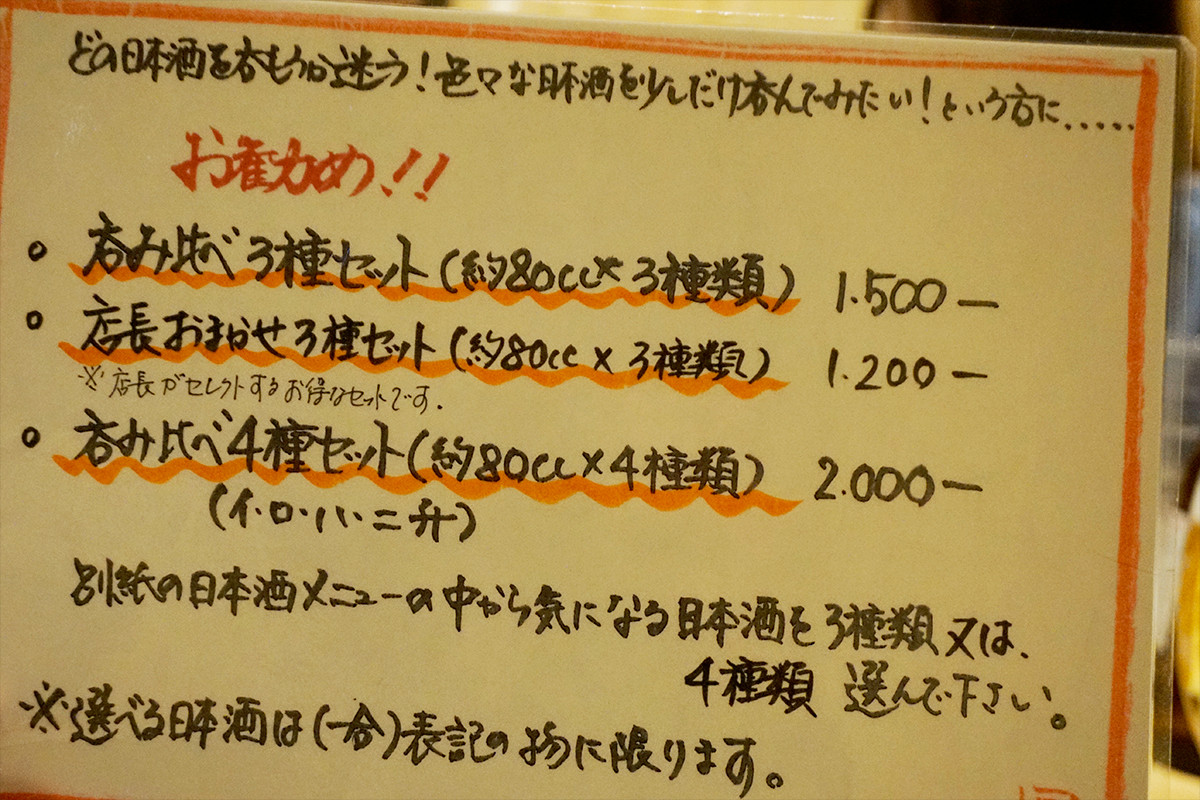 どの日本酒を呑もうか迷う!色々な日本酒を少しだけ呑んでみたい!という方に.....
お勧め!!
。呑み比べ3種セット(約80cc×3種類) 1.500ー
。店長おまかせ3種セット(約80cc×3種類) 1.200ー
※店長がセレクトするお得なセットです.
。呑み比べ4種セット(約80cc×4種類) 2.000ー
(イ・ロ・ハ・ニ升)
別紙の日本酒メニューの中から気になる日本酒を3種類又は、
4種類 選んで下さい。
※選べる日本酒は(一合)表記の物に限ります。